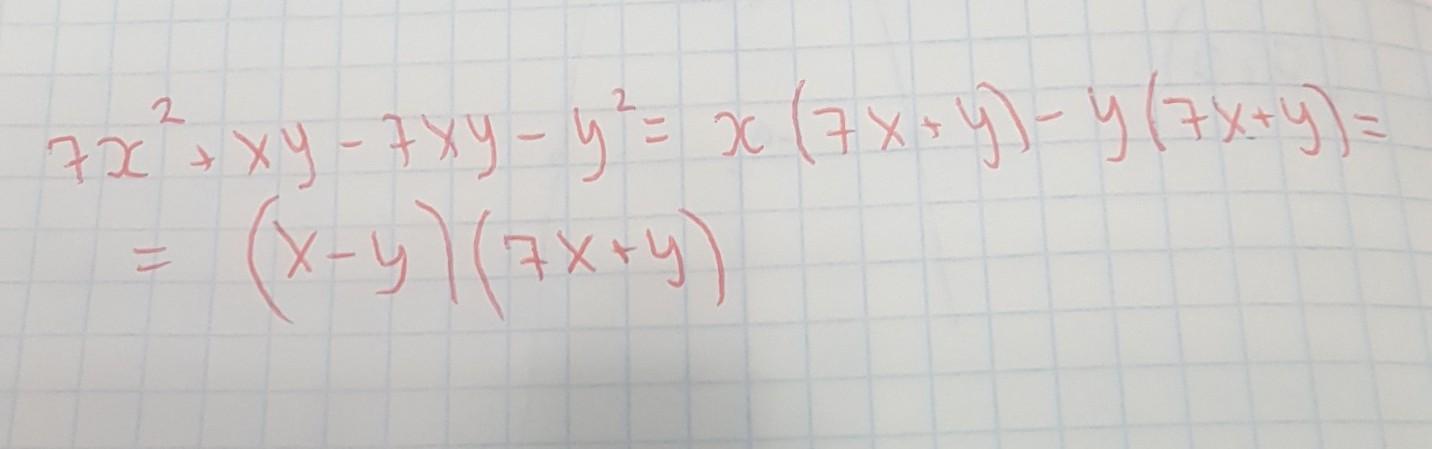 7x² + xy - 7xy - y² = x(7x+y) - y(7x+y) =
= (x-y)(7x+y)